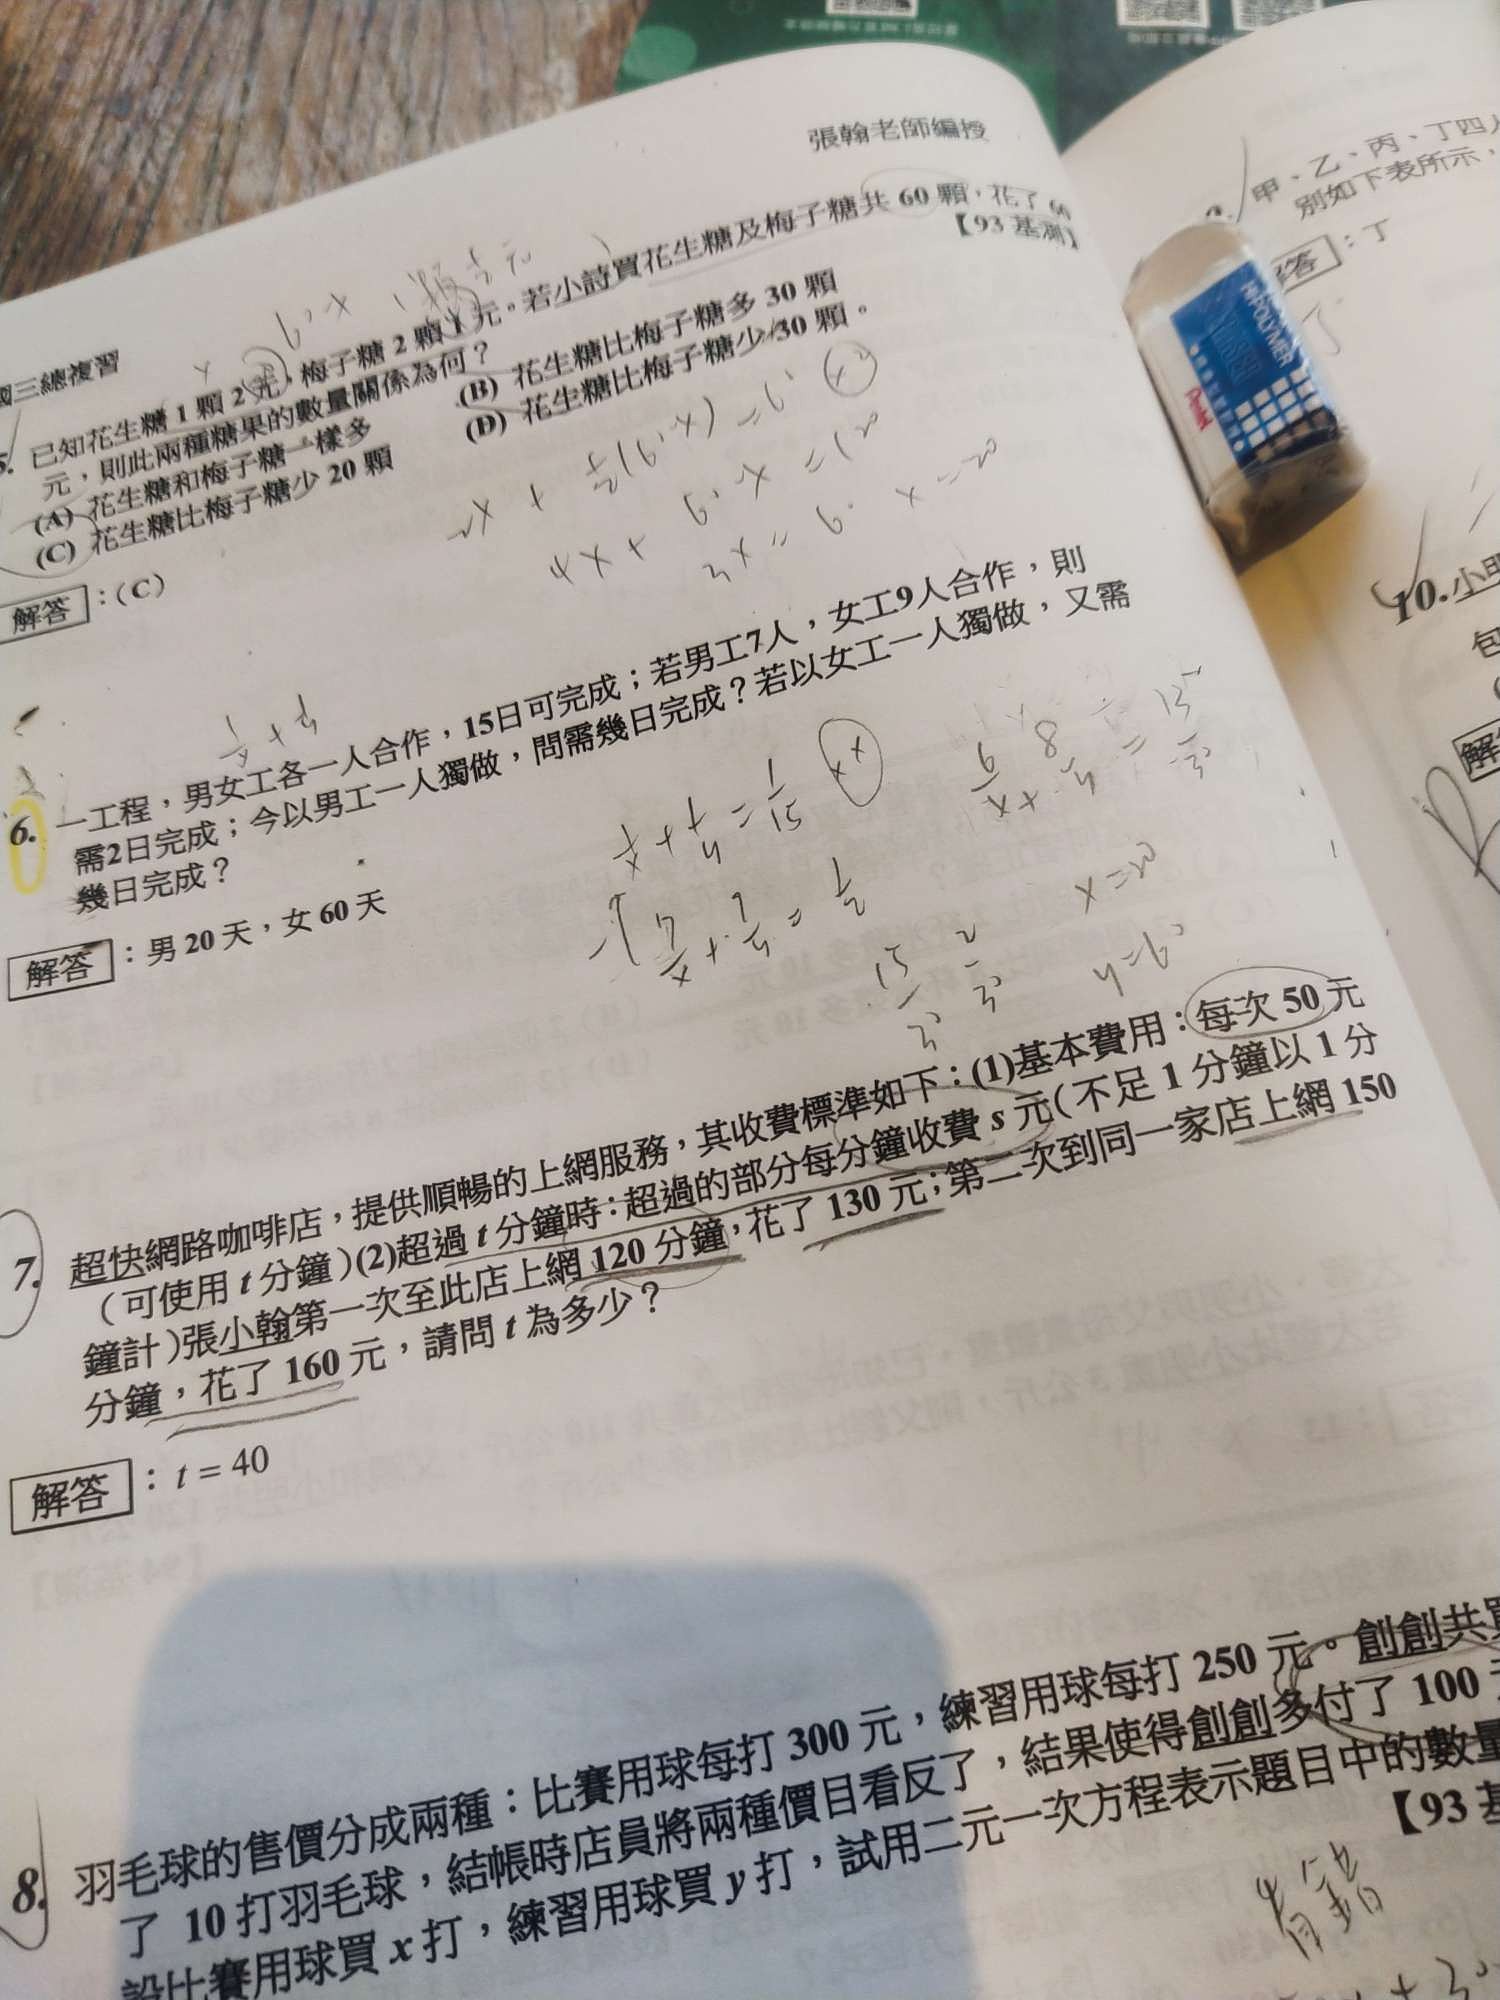 張翰老師編授
國三總複習
5. 已知花生糖 1 顆 2 元，梅子糖 2 顆 1 元。若小詩買花生糖及梅子糖共 60 顆，花了 60
元，則此兩種糖果的數量關係為何？
【93 基測】
(A) 花生糖和梅子糖一樣多
(B) 花生糖比梅子糖多 30 顆
(C) 花生糖比梅子糖少 20 顆
(D) 花生糖比梅子糖少 30 顆。
解答：(C)
4x+60-x=120
3x=60 x=20
6. 一工程，男女工各一人合作，15日可完成；若男工7人，女工9人合作，則
需2日完成；今以男工一人獨做，問需幾日完成？若以女工一人獨做，又需
幾日完成？
1/x+1/y=1/15
x=20
y=60
解答：男 20 天，女 60 天
7. 超快網路咖啡店，提供順暢的上網服務，其收費標準如下：(1)基本費用：每次 50 元
（可使用 t 分鐘）(2)超過 t 分鐘時：超過的部分每分鐘收費 s 元（不足 1 分鐘以 1 分
鐘計）張小翰第一次至此店上網 120 分鐘，花了 130 元；第二次到同一家店上網 150
分鐘，花了 160 元，請問 t 為多少？
解答：t = 40
8. 羽毛球的售價分成兩種：比賽用球每打 300 元，練習用球每打 250 元。創創共買
了 10 打羽毛球，結帳時店員將兩種價目看反了，結果使得創創多付了 100
設比賽用球買 x 打，練習用球買 y 打，試用二元一次方程表示題目中的數量
【93 基
有錯
甲、乙、丙、丁四人
別如下表所示，
解答：丁
10. 小明
包
解
Pentel
HI-POLYMER